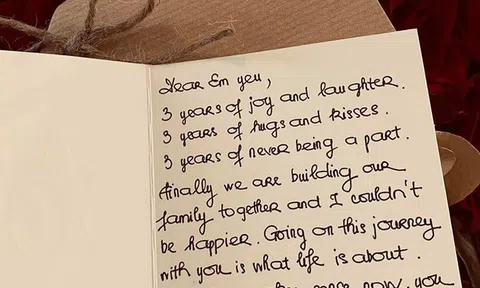 Dear Em yeu,
3 years of joy and laughter.
3 years of hugs and kisses.
3 years of never being a part.
Finally we are building our
family together and I couldn't
be happier. Going on this journey
with you is what life is about.
now, you